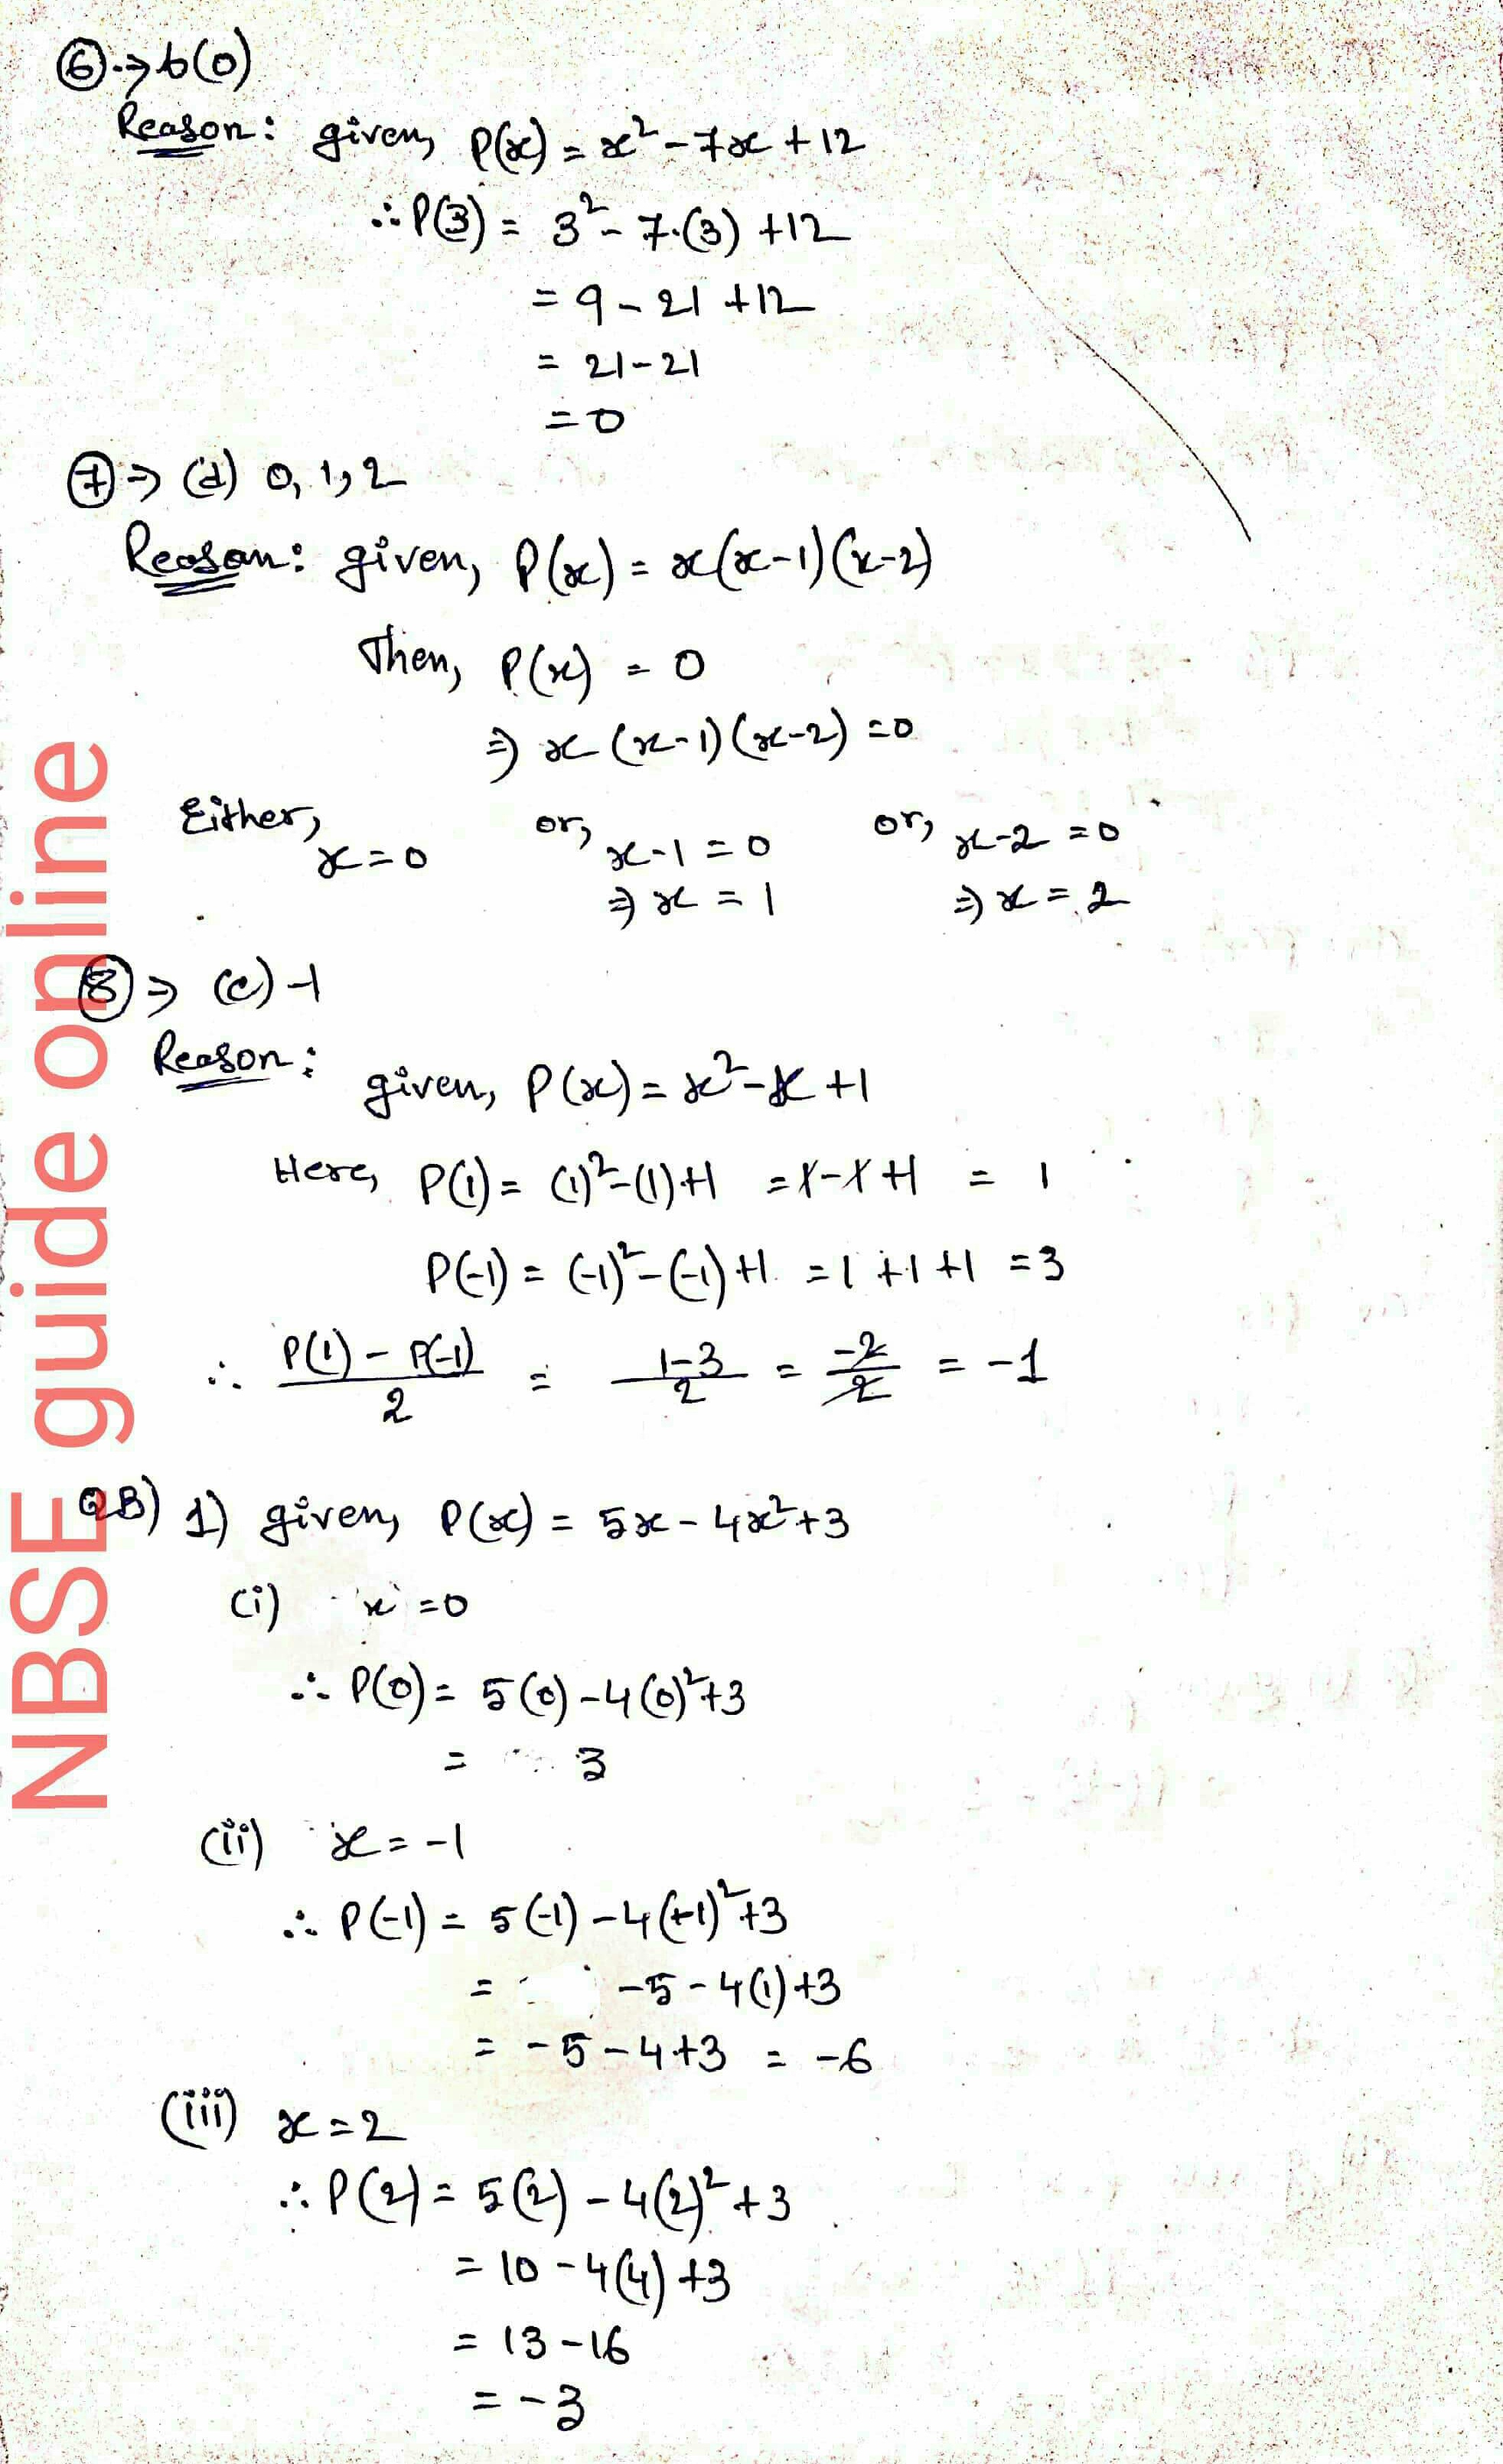 ⑥.→ b(0)
Reason: given, P(x) = x² - 7x + 12
∴ P(3) = 3² - 7.(3) + 12
= 9 - 21 + 12
= 21 - 21
= 0
⑦ ⇒ (d) 0, 1, 2
Reason: given, P(x) = x(x-1)(x-2)
Then, P(x) = 0
⇒ x (x-1)(x-2) = 0
Either, x = 0 or, x-1 = 0 or, x-2 = 0
⇒ x = 1 ⇒ x = 2
⑧ ⇒ (c) -1
Reason: given, P(x) = x² - x + 1
Here, P(1) = (1)² - (1) + 1 = 1 - 1 + 1 = 1
P(-1) = (-1)² - (-1) + 1 = 1 + 1 + 1 = 3
∴ P(1) - P(-1) / 2 = 1-3 / 2 = -2 / 2 = -1
QB) 1) given, P(x) = 5x - 4x² + 3
(i) x = 0
∴ P(0) = 5(0) - 4(0)² + 3
= 3
(ii) x = -1
∴ P(-1) = 5(-1) - 4(-1)² + 3
= -5 - 4(1) + 3
= -5 - 4 + 3 = -6
(iii) x = 2
∴ P(2) = 5(2) - 4(2)² + 3
= 10 - 4(4) + 3
= 13 - 16
= -3
NBSE guide online